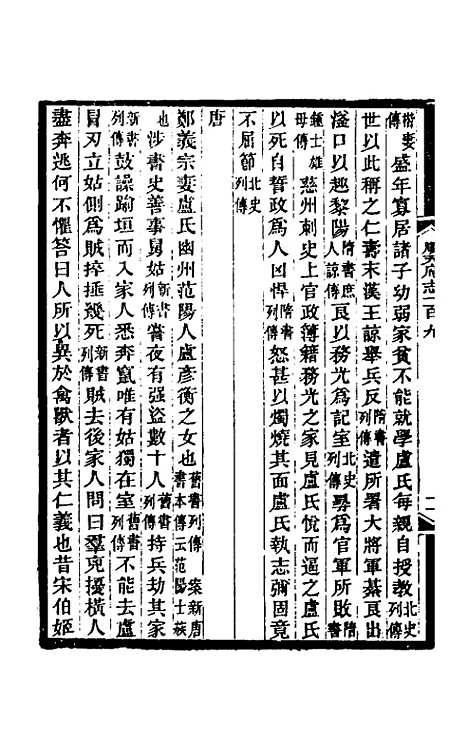 妻傳盛年寡居諸子幼弱家貧不能就學盧氏每親自授教北史列傳
世以此稱之仁壽末漢王諒舉兵反隋書列傳遣所署大將軍綦良出
滏口以趣黎陽隋書庶人諒傳良以務光爲記室北史列傳為官軍所敗隋書
鍾士雄母傳慈州刺史上官政簿籍務光之家見盧氏悅而逼之盧氏
以死自誓政爲人凶悍隋書列傳怒甚以燭燒其面盧氏執志彌固竟
不屈節北史列傳
唐
鄭義宗妻盧氏幽州范陽人盧彥衡之女也舊書列傳案新唐書本傳云范陽士族
也涉書史善事舅姑新書列傳嘗夜有强盜數十人舊書列傳持兵劫其家
新書列傳鼓譟踰垣而入家人悉奔竄唯有姑獨在室舊書列傳不能去盧
冒刃立姑側爲賊捽捶幾死新書列傳賊去後家人問曰羣兇擾橫人
盡奔逃何不懼答曰人所以異於禽獸者以其仁義也昔宋伯姬
順天府志一百九